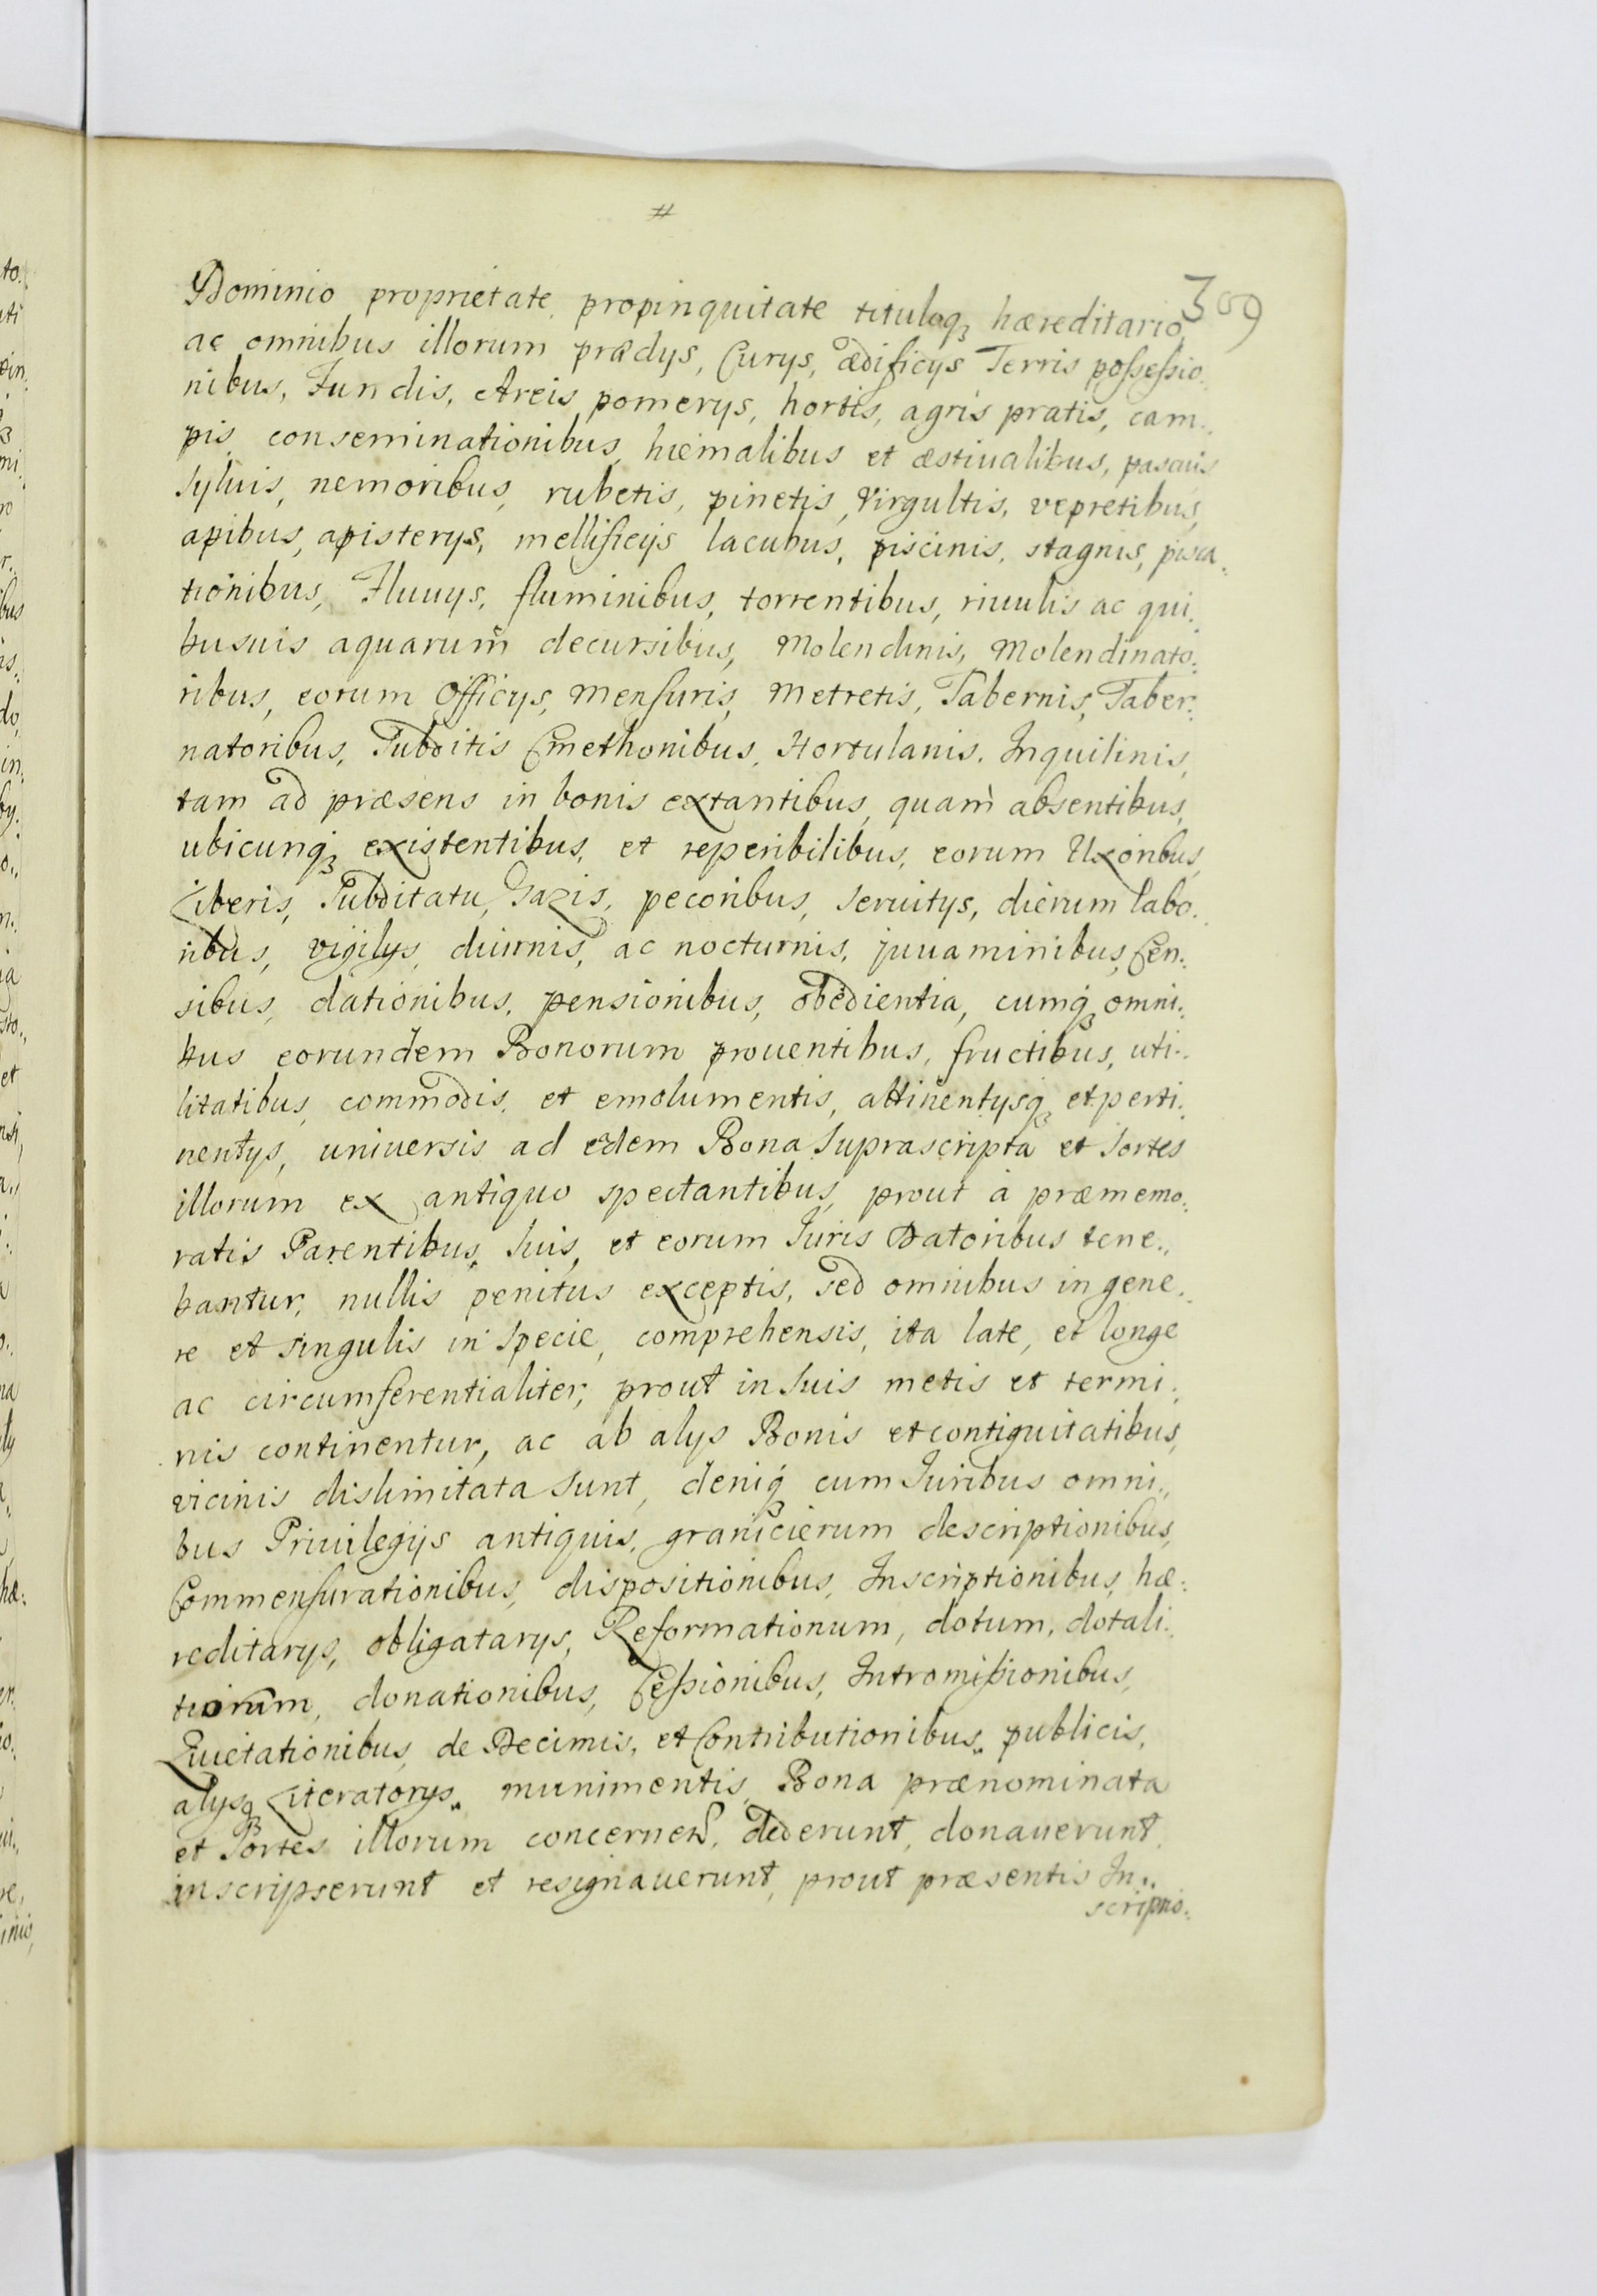 #
309
Dominio proprietate, propinquitate tituloq₃ hæreditario,
ac omnibus illorum prædys, Curys, ædificys Terris possessio„
nibus, Fundis, Areis, pomerys, hortis, agris pratis, cam„
pis, conseminationibus, hiemalibus et æstiualibus, pascuis
Syluis, nemoribus, rubetis, pinetis, virgultis, vepretibus,
apibus, apisterys, mellificijs lacubus, piscinis, stagnis, pisca„
tionibus, Fluuys, fluminibus, torrentibus, riuulis ac qui„
busuis aquarum decursibus, Molendinis, Molendinato„
ribus, eorum Officys, Mensuris, Metretis, Tabernis, Taber„
natoribus, Subditis Cmethonibus, Hortulanis, Inquilinis,
tam ad præsens in bonis extantibus, quam absentibus,
ubicunq₃ existentibus, et reperibilibus, eorum Uxoribus,
Liberis, Subditatu, Gazis, pecoribus, Seruitys, dierum labo„
ribus, vigilys, diurnis, ac nocturnis, juuaminibus, Cen„
sibus, dationibus, pensionibus, obedientia, cumq₃ omni„
bus eorundem Bonorum prouentibus, fructibus, uti„
litatibus, commodis, et emolumentis, attinentysq₃ et perti„
nentys, uniuersis ad eadem Bona Suprascripta et Sortes
illorum ex antiquo spectantibus, prout à præmemo„
ratis Parentibus Suis, et eorum Juris Datoribus tene„
bantur, nullis penitus exceptis, sed omnibus in gene„
re et singulis in Specie, comprehensis, ita late, et longe
ac circumferentialiter, prout in Suis metis et termi„
nis continentur, ac ab alys Bonis et contiguitatibus,
vicinis dislimitata Sunt, deniq₃ cum Juribus omni„
bus Priuilegijs antiquis, granicierum descriptionibus,
Commensurationibus, dispositionibus, Inscriptionibus, hæ„
reditarys, obligatarys, Reformationum, dotum, dotali„
tiorum, donationibus, Cessionibus, Intromissionibus,
Quietationibus, de Decimis, et Contributionibus publicis,
alysq₃ Literatorys munimentis, Bona prænominata
et Sortes illorum concernen. dederunt, donauerunt,
inscripserunt et resignauerunt, prout præsentis In„
scriptio„